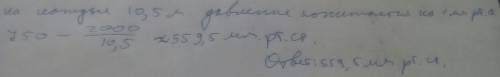 на каждые 10,5 м давление понижается на 1 мм рт.ст.
750 - 2000/10,5 ≈ 559,5 мм. рт. ст.
Ответ: 559,5 мм. рт. ст.